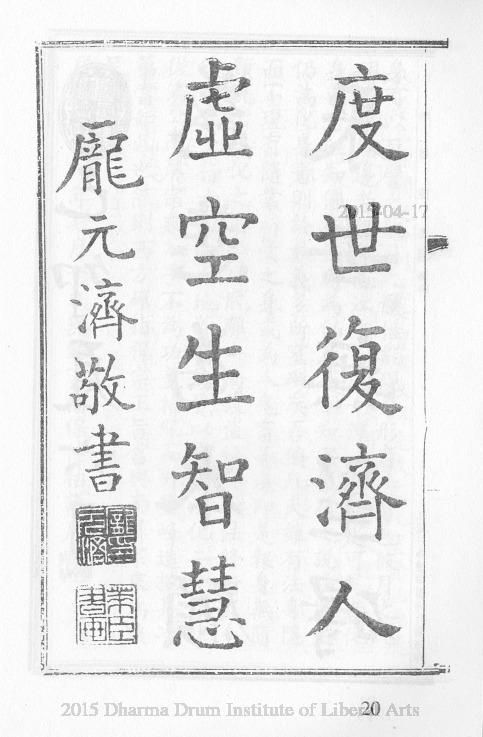 度世復濟人
虛空生智慧
龐元濟敬書
2015-04-17
2015 Dharma Drum Institute of Liberal Arts
20